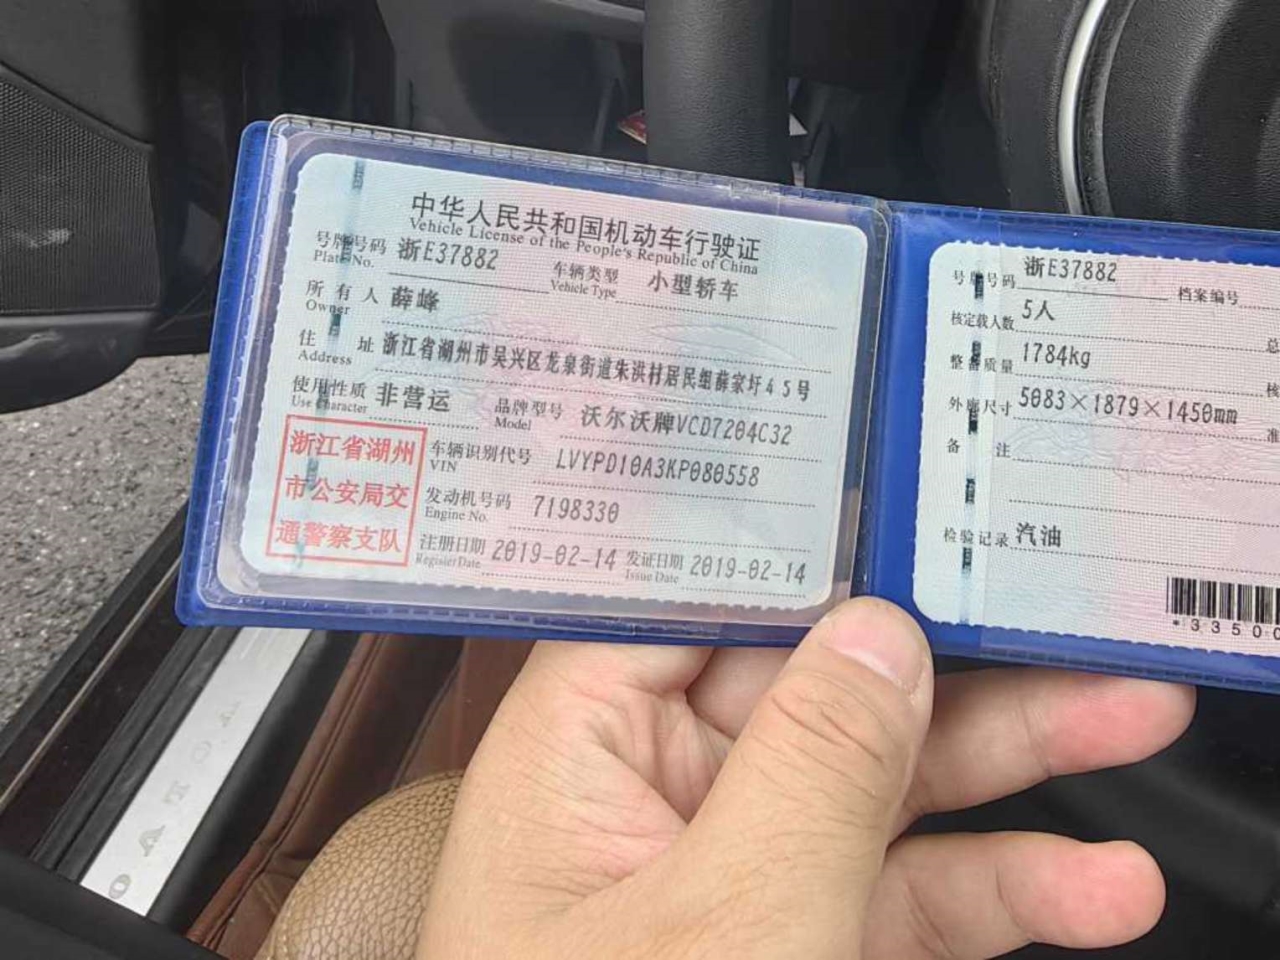 中华人民共和国机动车行驶证
Vehicle License of the People's Republic of China
号牌号码 浙E37882 车辆类型 小型轿车
Plate No. Vehicle Type
所有人 薛峰
Owner
住址 浙江省湖州市吴兴区龙泉街道朱洪村居民组薛家圩45号
Address
使用性质 非营运 品牌型号 沃尔沃牌VCD7204C32
Use Character Model
浙江省湖州
市公安局交
通警察支队
车辆识别代号 LVYPD10A3KP080558
VIN
发动机号码 7198330
Engine No.
注册日期 2019-02-14 发证日期 2019-02-14
Register Date Issue Date
号牌号码 浙E37882 档案编号
核定载人数 5人 总
整备质量 1784kg 核
外廓尺寸 5083×1879×1450mm 准
备注
检验记录 汽油
*33500
VOLVO